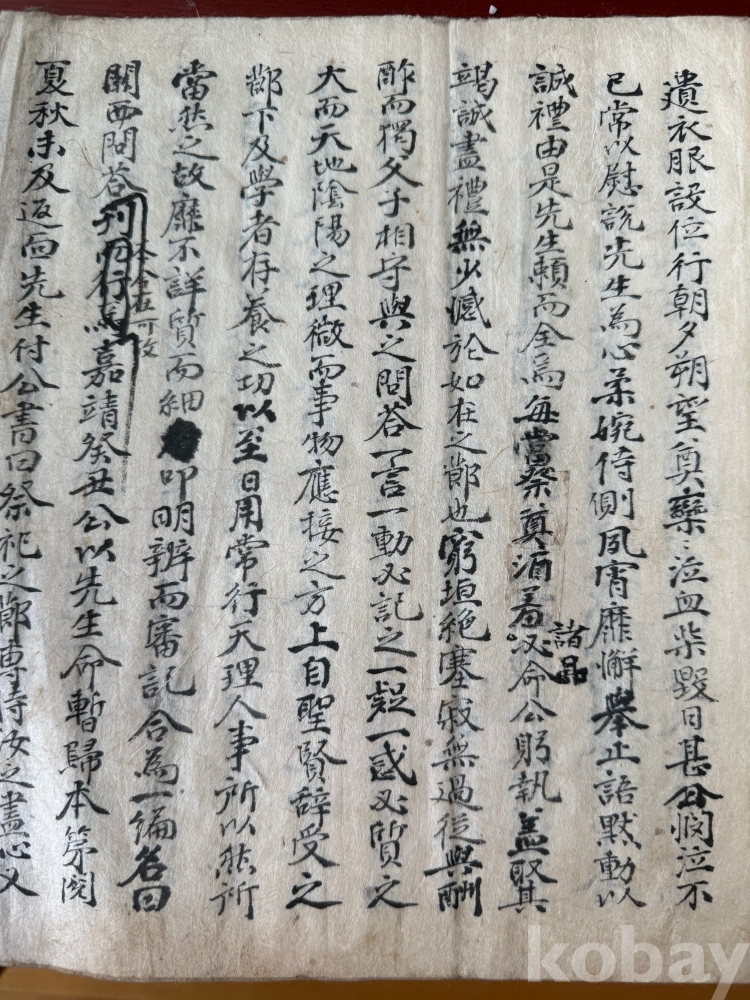 遺衣服設位行朝夕朔望奠欒〻泣血柴毀日甚公悶泣不
已常以慰說先生為心柔婉侍側夙宵靡懈舉止語黙動以
誠禮由是先生賴而全焉每當祭奠酒羞必命公躬執盖取其
諸品
竭誠盡禮無少憾於如在之節也窮垣絶塞寂無過從與酬
酢而獨父子相守與之問答一言一動必記之一疑一惑必質之
大而天地陰陽之理微而事物應接之方上自聖賢辞受之
節下及學者存養之切以至日用常行天理人事所以然所
當然之故靡不詳質而細叩明辨而審記合為一編名曰
關西問答刊而行焉嘉靖癸丑公以先生命暫歸本第閱
夏秋未及返而先生付公書曰祭祀之節專恃汝之盡心又
kobay